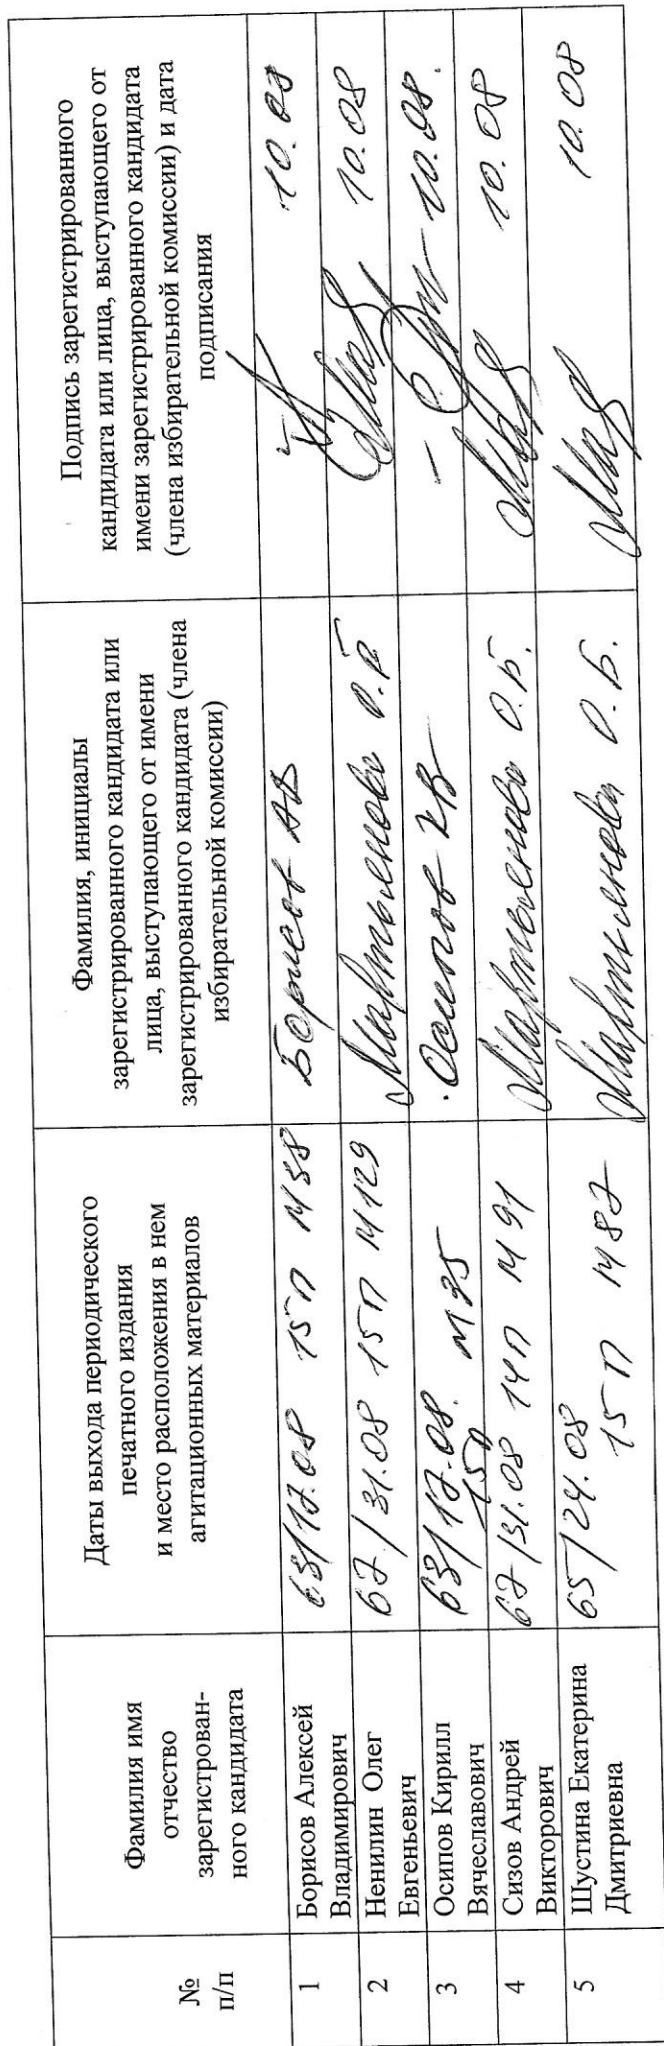 №
п/п
Фамилия имя
отчество
зарегистрирован-
ного кандидата
Даты выхода периодического
печатного издания
и место расположения в нем
агитационных материалов
Фамилия, инициалы
зарегистрированного кандидата или
лица, выступающего от имени
зарегистрированного кандидата (члена
избирательной комиссии)
Подпись зарегистрированного
кандидата или лица, выступающего от
имени зарегистрированного кандидата
(члена избирательной комиссии) и дата
подписания
1
Борисов Алексей
Владимирович
63/17.08 15п М38
Борисов АВ
10.08
2
Ненилин Олег
Евгеньевич
67/31.08 15п М129
Мартьенова О.Б
10.08
3
Осипов Кирилл
Вячеславович
63/17.08. М75
15п
Осипов КВ
10.08.
4
Сизов Андрей
Викторович
67/31.08 14п М91
Мартьенова О.Б.
10.08
5
Шустина Екатерина
Дмитриевна
65/24.08
15п М87
Мартьенова О.Б.
10.08